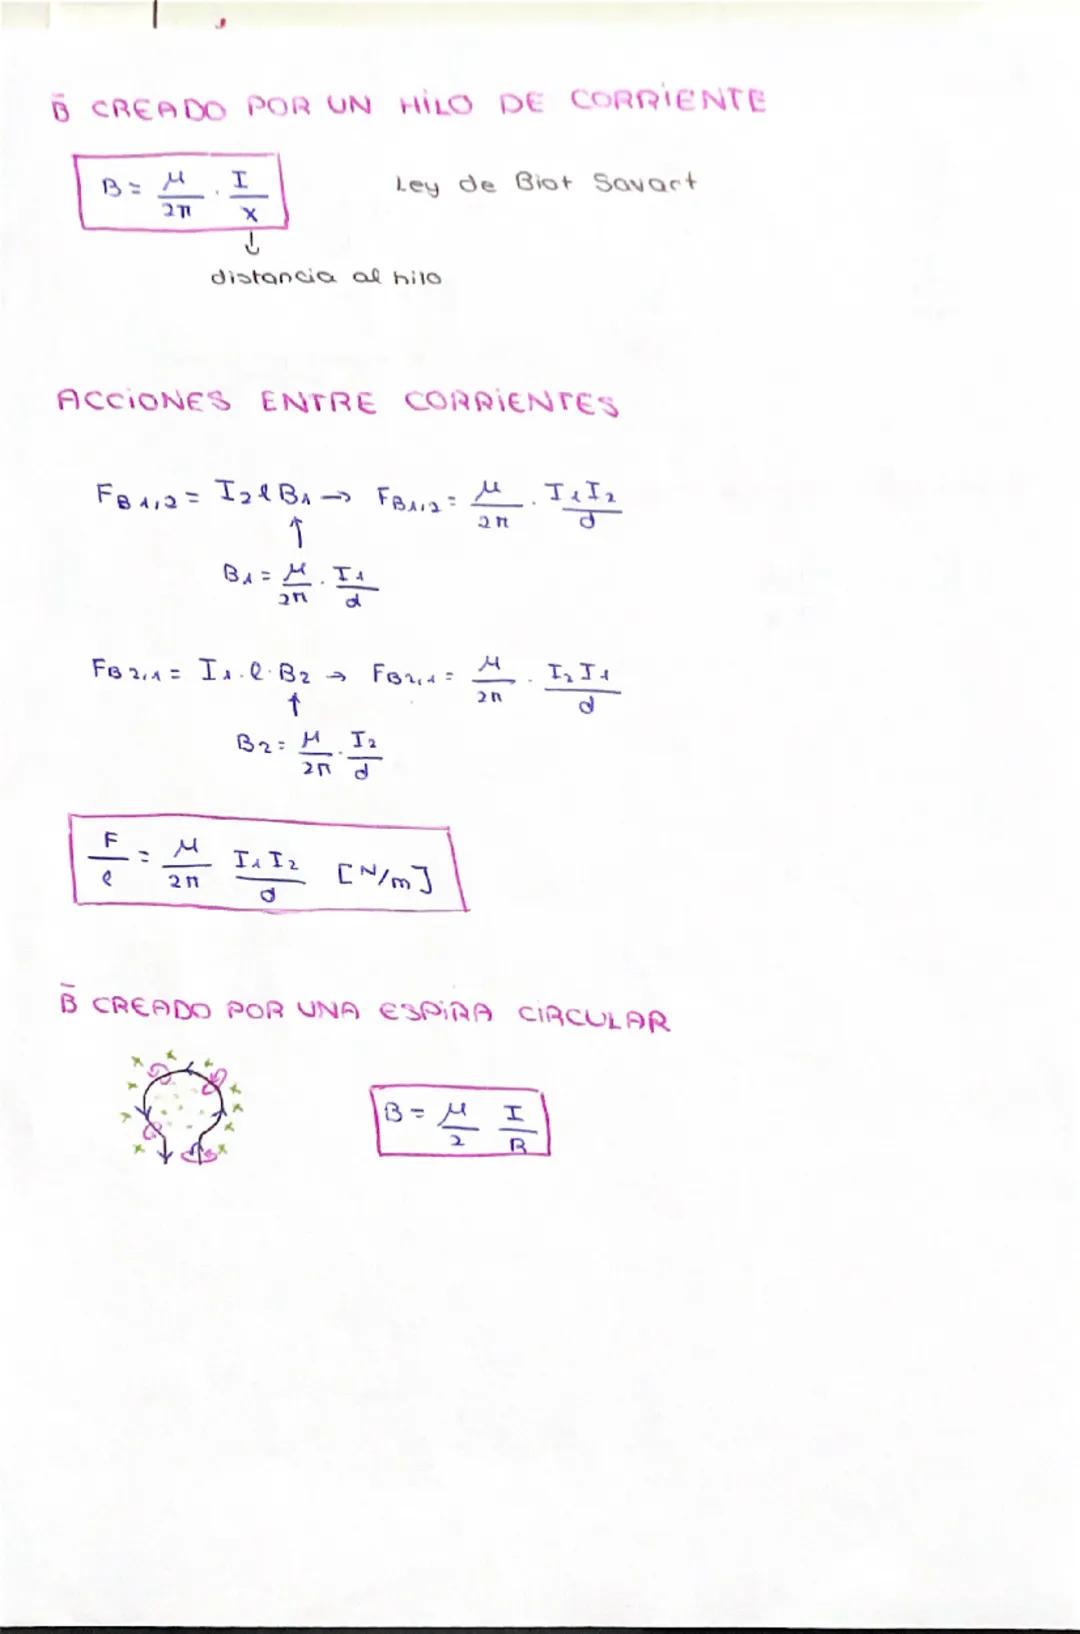 B̄ CREADO POR UN HILO DE CORRIENTE
B = μ/2π · I/x
Ley de Biot Savart
↓
distancia al hilo
ACCIONES ENTRE CORRIENTES
F_B1,2 = I₂ℓB₁ → F_B1,2 = μ/2π · I₁I₂/d
↑
B₁ = μ/2π · I₁/d
F_B2,1 = I₁·ℓ·B₂ → F_B2,1 = μ/2π · I₂I₁/d
↑
B₂ = μ/2π · I₂/d
F/ℓ = μ/2π I₁I₂/d [N/m]
B̄ CREADO POR UNA ESPIRA CIRCULAR
B = μ/2 I/R